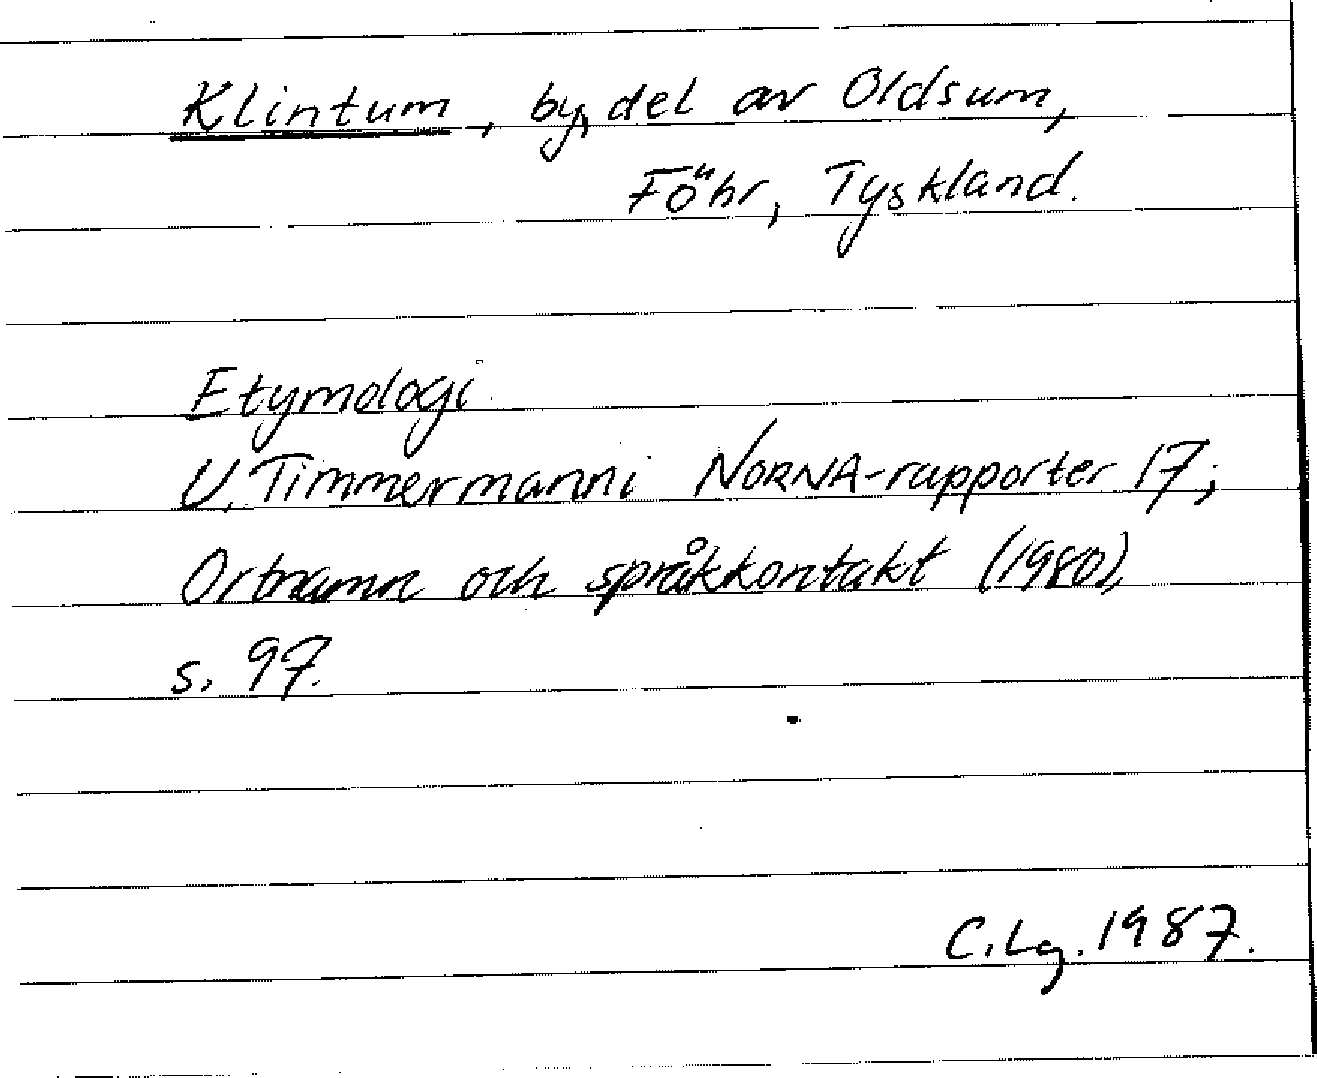 Klintum, by, del av Oldsum,
Föhr, Tyskland.
Etymologi
U. Timmermann i NORNA-rapporter 17;
Ortnamn och språkkontakt (1980),
s. 97.
C. Lg. 1987.